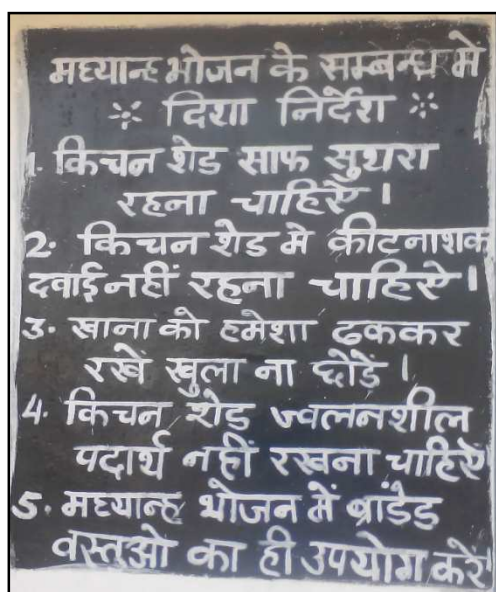 मध्यान्ह भोजन के सम्बन्ध मे
दिशा निर्देश
1. किचन शेड साफ सुथरा
रहना चाहिऐ।
2. किचन शेड मे कीटनाशक
दवाई नहीं रहना चाहिऐ।
3. खाना को हमेशा ढककर
रखें खुला ना छोडें।
4. किचन शेड ज्वलनशील
पदार्थ नहीं रखना चाहिऐं
5. मध्यान्ह भोजन में ब्रांडेड
वस्तुओ का ही उपयोग करें